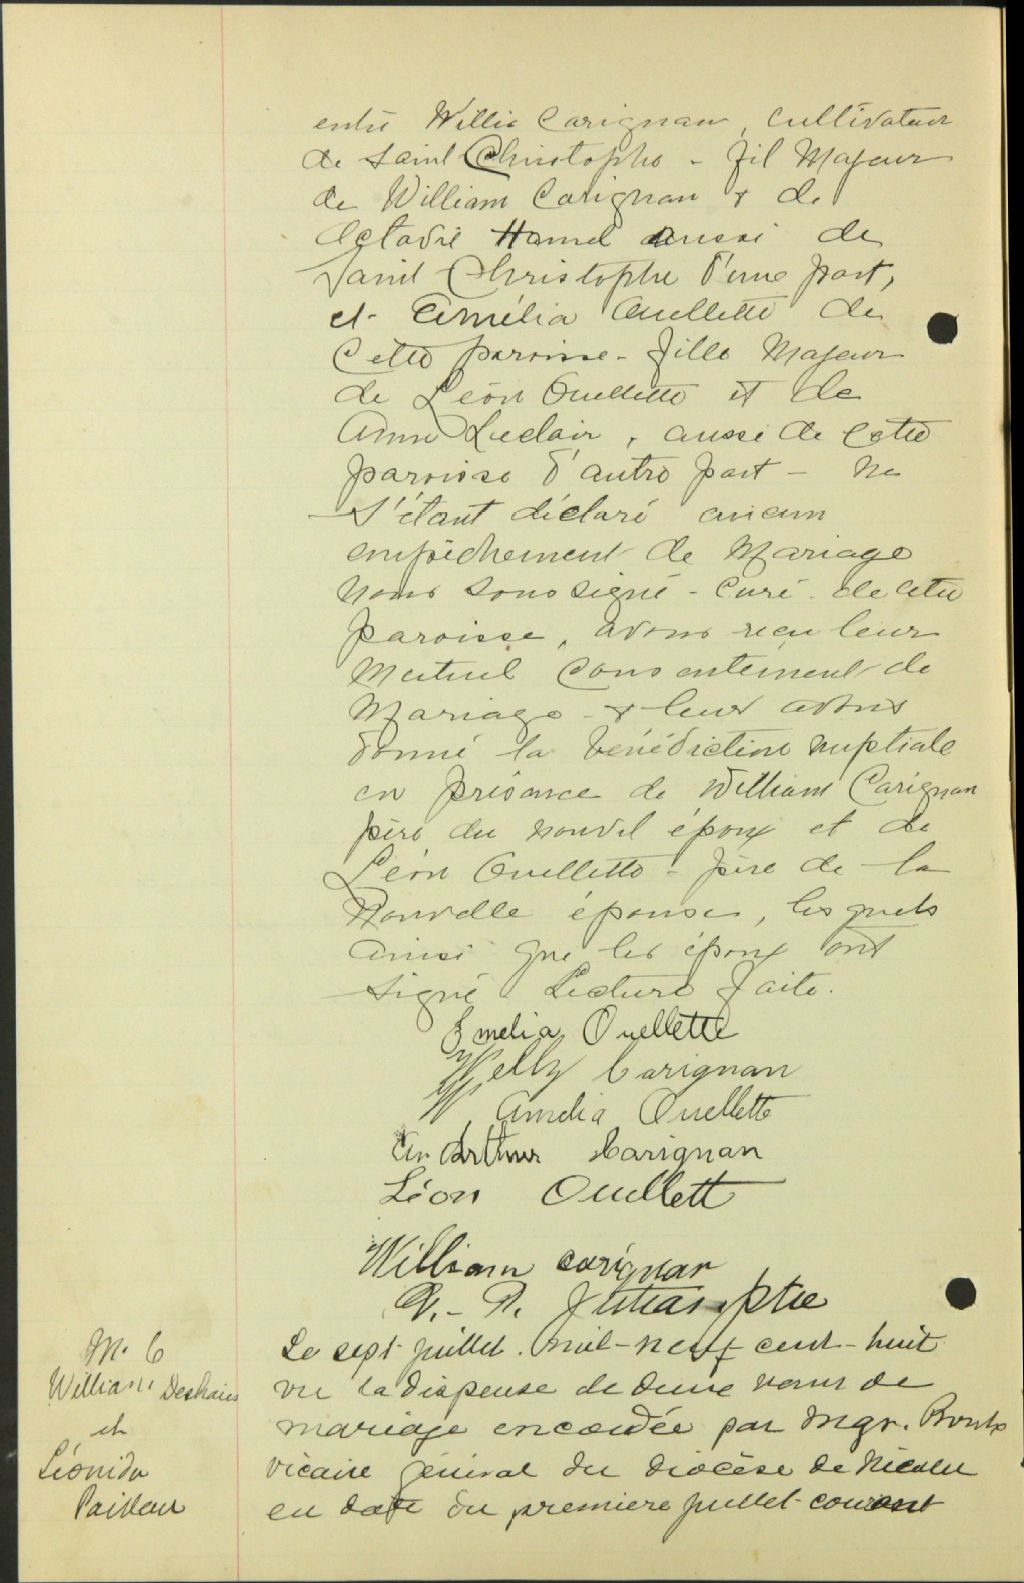 entre Willie Carignan, cultivateur
de Saint Christophe - fil Majeur
de William Carignan & de
Octavie Hamel aussi de
Saint Christophe d'une part,
et Amélia Ouellette de
Cette paroisse - fille Majeur
de Léon Ouellette et de
Anna Leclair, aussi de Cette
paroisse d'autre part - ne
s'étant déclaré aucun
empêchement de Mariage
nous soussigné - curé de cette
paroisse, avons reçu leur
Mutuel Consentement de
Mariage - & leur avons
donné la bénédiction nuptiale
en présence de William Carignan
père du nouvel époux et de
Léon Ouellette - père de la
Nouvelle épouse, lesquels
ainsi que les époux ont
signé. Lecture faite.
Emelia Ouellette
Welly Carignan
Amelia Ouellette
Arthur Carignan
Léon Ouellett
William carignan
Ptre
M. 6
William Deshaies
et
Léonida
Le sept juillet. mil-neuf cent-huit
vu la dispense de deux bans de
mariage accordée par Mgr.
vicaire général du diocèse de Nicolet
en date du premiere juillet courant